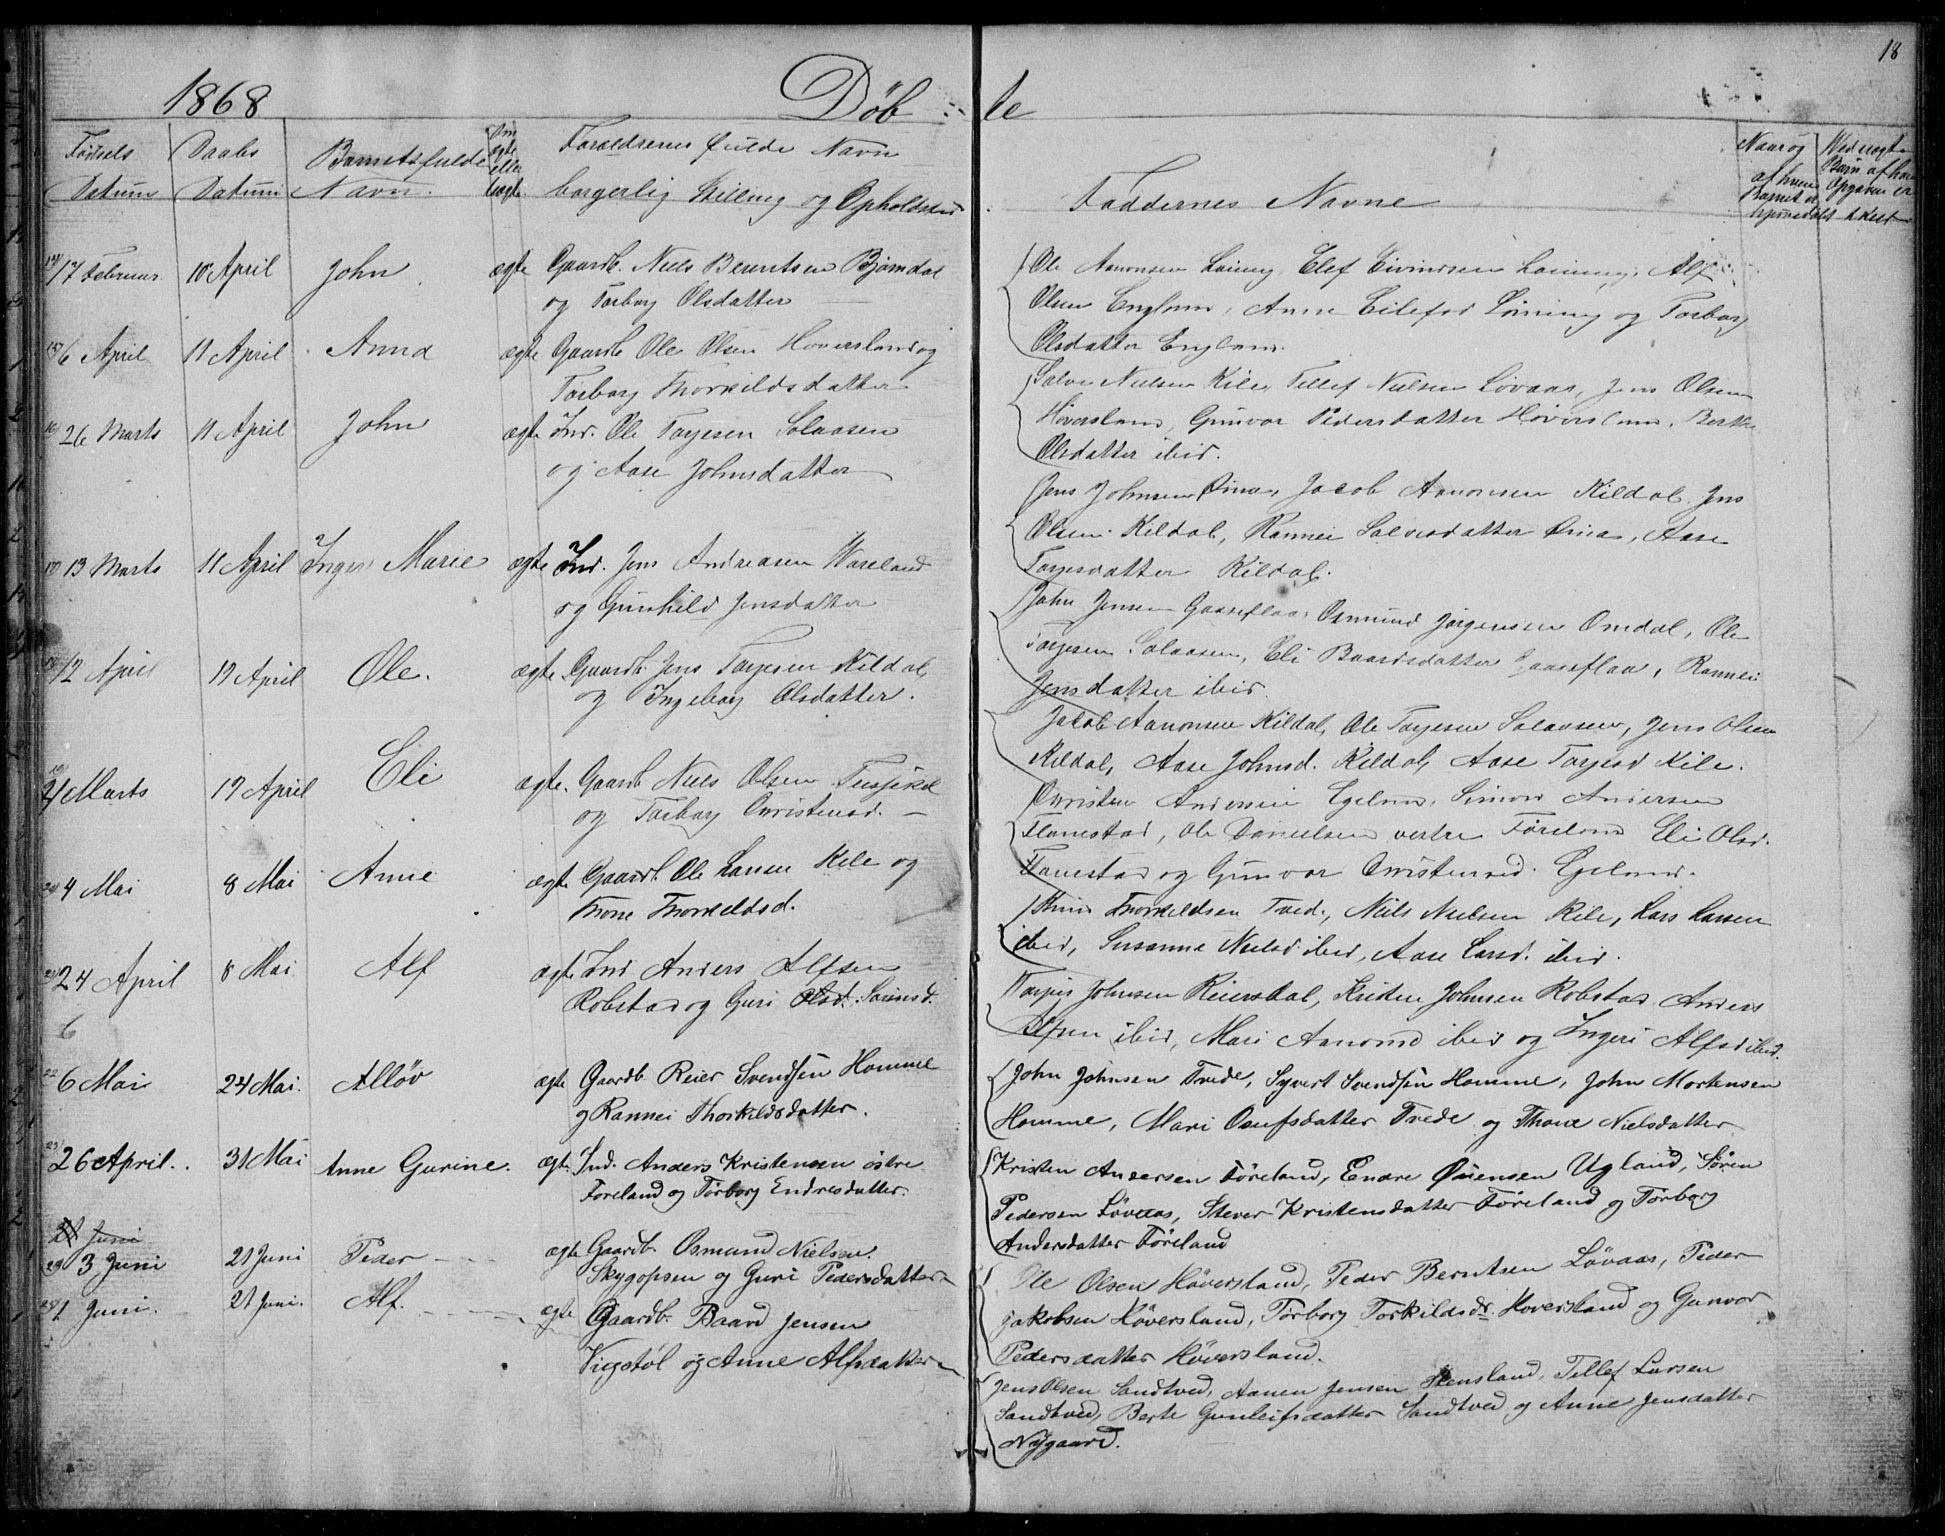 18
1868 Döb te
Fødsels Datum
Daabs Datum
Barnets fulde Navn.
Om ægte eller uægte
Forældrenes Fulde Navn
borgerlig Stilling og Opholdssted
Faddernes Navne
Naar og af hvem Barnet er
Barn af
17 Februar 10 April John ægte Gaardb. Niels Berntsen Bjørndal
og Torborg Olsdatter
Ole Aanonsen Lauvig, Elef Eivindsen, Alf
Olsen England, Anne Eilefsd og Torborg
Olsdatter England.
6 April 11 April Anna ægte Gaardb Ole Olsen Hoversland og
Torborg Thorkildsdatter
Salve Nielsen Kile, Tellef Nielsen Lövaas, Jens Olsen
Höversland, Gunvor Pedersdatter Höversland, Berthe
Olsdatter ibid.
26 Marts 11 April John ægte Ind. Ole Torjesen Solaasen
og Aase Johnsdatter
Jens Johnsen, Jacob Aanonsen Kildal, Jens
Olsen Kildal, Rannei Salvesdatter, Aase
Torjesdatter Kildal.
13 Marts 11 April Inger Marie ægte Ind. Jens Andreasen Wareland
og Gunhild Jensdatter
John Jensen Gaaseflaa, Osmund Jörgensen Omdal, Ole
Torjesen Solaasen, Eli Baardsdatter Gaaseflaa, Rannei
Jensdatter ibid.
2 April 19 April Ole. ægte Gaardb. Jens Torjesen Kildal
og Ingeborg Olsdatter.
Jacob Aanonsen Kildal, Ole Torjesen Solaasen, Jens Olsen
Kildal, Aase Johnsd. Kildal, Aase Torjesd Kile.
21 Marts 19 April Eli ægte. Gaardb Niels Olsen
og Torborg Christensd. –
Christen Andersen Egeland, Simon Andersen
Flanestad, Ole Danielsen vestre Föreland Eli Olsd.
Flanestad og Gunvor Christensd. Egeland.
4 Mai 8 Mai Anne ægte Gaardb. Ole Larsen Kile og
Thone Thorkeldsd.
Thorkeldsen Tved., Niels Nielsen Kile, Lars Larsen
ibid, Susanna Nielsd ibid, Aase Larsd. ibid.
24 April 8 Mai Alf ægte Ind Anders Alfsen
Robstad og Guri Olsd. Sörensd.
Torjus Johnsen Reiersdal, Kristen Johnsen Robstad Anders
Alfsen ibid, Mari Aanonsd ibid og Ingeri Alfsd ibid.
6
6 Mai 24 Mai. Alløv ægte Gaardb Reier Svendsen Homme
og Rannei Thorkildsdatter.
John Johnsen Trede, Syvert Svendsen Homme, John Mortensen
Homme, Mari Osufsdatter Trede og Thone Nielsdatter
26 April. 31 Mai Anne Gurine. ægte. Ind. Anders Kristensen östre
Foreland og Törborg Endresdatter.
Kristen Andersen Föreland, Endre Øiensen Ugland, Sören
Pedersen Lövaas, Kristensdatter Föreland og Torborg
Andersdatter Föreland
Juni
3 Juni 21 Juni Peder ægte Gaardb. Osmund Nielsen
og Guri Pedersdatter
Ole Olsen Höversland, Peder Berntsen Lövaas, Peder
Jakobsen Höversland, Torborg Torkildsdr. Hoversland og Gunvor
Pedersdatter Höversland.
1 Juni. 21 Juni. Alf. ægte Gaardb. Baard Jensen
Vigstøl og Anne Alfsdatter
Jens Olsen Sandtved, Aanen Jensen Stensland, Tellef Larsen
Sandtved, Berte Gunleifsdatter Sandtved og Anne Jensdatter
Nygaard.